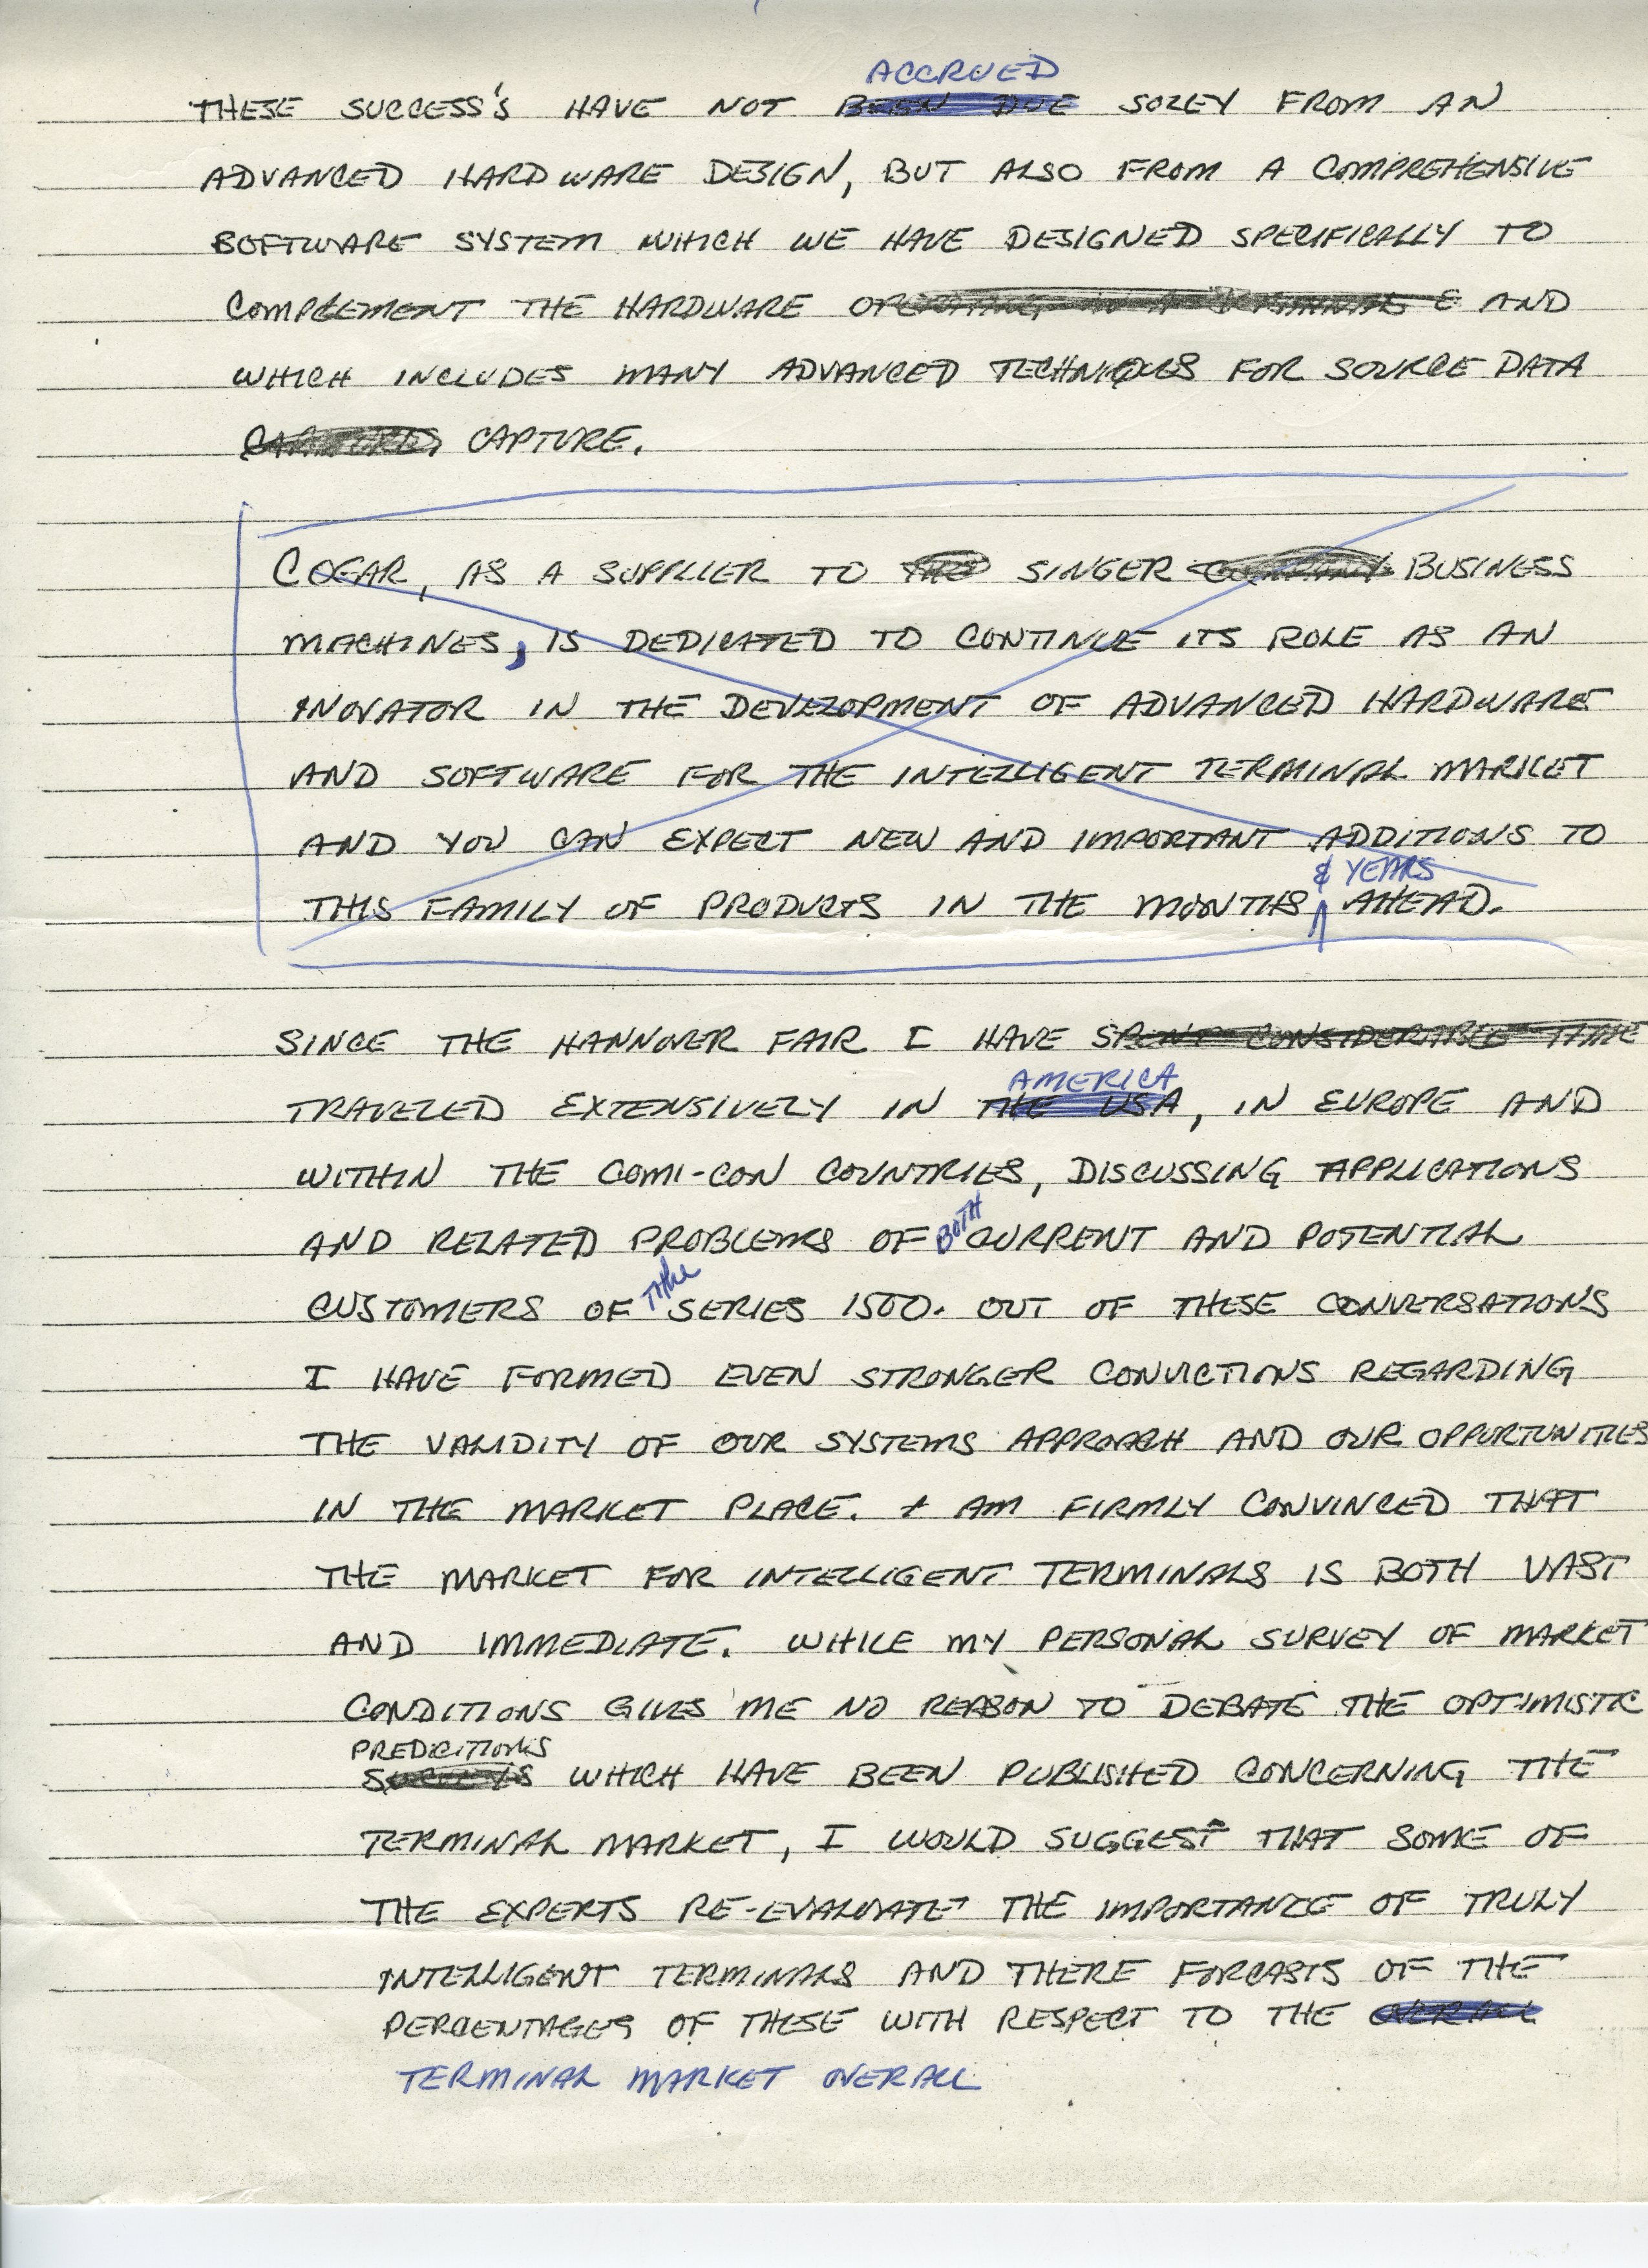 ACCRUED
THESE SUCCESS'S HAVE NOT BEEN DUE SOLEY FROM AN
ADVANCED HARDWARE DESIGN, BUT ALSO FROM A COMPREHENSIVE
SOFTWARE SYSTEM WHICH WE HAVE DESIGNED SPECIFICALLY TO
COMPLEMENT THE HARDWARE OPERATING IN A & AND
WHICH INCLUDES MANY ADVANCED TECHNIQUES FOR SOURCE DATA
CAPTURE.
COGAR, AS A SUPPLIER TO THE SINGER COMPANY BUSINESS
MACHINES, IS DEDICATED TO CONTINUE ITS ROLE AS AN
INOVATOR IN THE DEVELOPMENT OF ADVANCED HARDWARE
AND SOFTWARE FOR THE INTELLIGENT TERMINAL MARKET
AND YOU CAN EXPECT NEW AND IMPORTANT ADDITIONS TO
& YEARS
THIS FAMILY OF PRODUCTS IN THE MONTHS AHEAD.
SINCE THE HANNOVER FAIR I HAVE SPENT CONSIDERABLE TIME
AMERICA
TRAVELED EXTENSIVELY IN THE USA, IN EUROPE AND
WITHIN THE COMI-CON COUNTRIES, DISCUSSING APPLICATIONS
AND RELATED PROBLEMS OF BOTH CURRENT AND POTENTIAL
CUSTOMERS OF THE SERIES 1500. OUT OF THESE CONVERSATIONS
I HAVE FORMED EVEN STRONGER CONVICTIONS REGARDING
THE VALIDITY OF OUR SYSTEMS APPROACH AND OUR OPPORTUNITIES
IN THE MARKET PLACE. I AM FIRMLY CONVINCED THAT
THE MARKET FOR INTELLIGENT TERMINALS IS BOTH VAST
AND IMMEDIATE. WHILE MY PERSONAL SURVEY OF MARKET
CONDITIONS GIVES ME NO REASON TO DEBATE THE OPTIMISTIC
PREDICITIONS
SURVEYS WHICH HAVE BEEN PUBLISHED CONCERNING THE
TERMINAL MARKET, I WOULD SUGGEST THAT SOME OF
THE EXPERTS RE-EVALUATE THE IMPORTANCE OF TRULY
INTELLIGENT TERMINALS AND THERE FORCASTS OF THE
PERCENTAGES OF THESE WITH RESPECT TO THE OVERALL
TERMINAL MARKET OVERALL